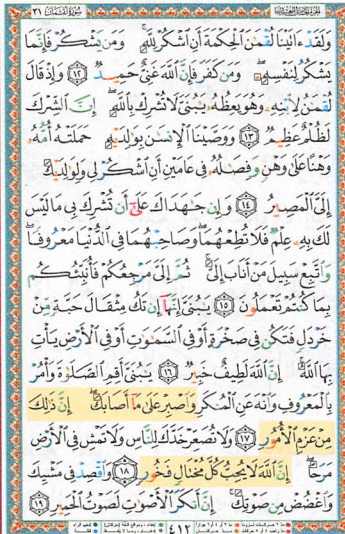 سُورَةُ لُقْمَان ٣١
وَلَقَدْ ءَاتَيْنَا لُقْمَٰنَ ٱلْحِكْمَةَ أَنِ ٱشْكُرْ لِلَّهِ ۚ وَمَن يَشْكُرْ فَإِنَّمَا
يَشْكُرُ لِنَفْسِهِۦ ۖ وَمَن كَفَرَ فَإِنَّ ٱللَّهَ غَنِىٌّ حَمِيدٌ ١٢ وَإِذْ قَالَ
لُقْمَٰنُ لِٱبْنِهِۦ وَهُوَ يَعِظُهُۥ يَٰبُنَىَّ لَا تُشْرِكْ بِٱللَّهِ ۖ إِنَّ ٱلشِّرْكَ
لَظُلْمٌ عَظِيمٌ ١٣ وَوَصَّيْنَا ٱلْإِنسَٰنَ بِوَٰلِدَيْهِ حَمَلَتْهُ أُمُّهُۥ
وَهْنًا عَلَىٰ وَهْنٍ وَفِصَٰلُهُۥ فِى عَامَيْنِ أَنِ ٱشْكُرْ لِى وَلِوَٰلِدَيْكَ
إِلَىَّ ٱلْمَصِيرُ ١٤ وَإِن جَٰهَدَاكَ عَلَىٰٓ أَن تُشْرِكَ بِى مَا لَيْسَ
لَكَ بِهِۦ عِلْمٌ فَلَا تُطِعْهُمَا ۖ وَصَاحِبْهُمَا فِى ٱلدُّنْيَا مَعْرُوفًا ۖ
وَٱتَّبِعْ سَبِيلَ مَنْ أَنَابَ إِلَىَّ ۚ ثُمَّ إِلَىَّ مَرْجِعُكُمْ فَأُنَبِّئُكُم
بِمَا كُنتُمْ تَعْمَلُونَ ١٥ يَٰبُنَىَّ إِنَّهَآ إِن تَكُ مِثْقَالَ حَبَّةٍ مِّنْ
خَرْدَلٍ فَتَكُن فِى صَخْرَةٍ أَوْ فِى ٱلسَّمَٰوَٰتِ أَوْ فِى ٱلْأَرْضِ يَأْتِ
بِهَا ٱللَّهُ ۚ إِنَّ ٱللَّهَ لَطِيفٌ خَبِيرٌ ١٦ يَٰبُنَىَّ أَقِمِ ٱلصَّلَوٰةَ وَأْمُرْ
بِٱلْمَعْرُوفِ وَٱنْهَ عَنِ ٱلْمُنكَرِ وَٱصْبِرْ عَلَىٰ مَآ أَصَابَكَ ۖ إِنَّ ذَٰلِكَ
مِنْ عَزْمِ ٱلْأُمُورِ ١٧ وَلَا تُصَعِّرْ خَدَّكَ لِلنَّاسِ وَلَا تَمْشِ فِى ٱلْأَرْضِ
مَرَحًا ۖ إِنَّ ٱللَّهَ لَا يُحِبُّ كُلَّ مُخْتَالٍ فَخُورٍ ١٨ وَٱقْصِدْ فِى مَشْيِكَ
وَٱغْضُضْ مِن صَوْتِكَ ۚ إِنَّ أَنكَرَ ٱلْأَصْوَٰتِ لَصَوْتُ ٱلْحَمِيرِ ١٩
٤١٢